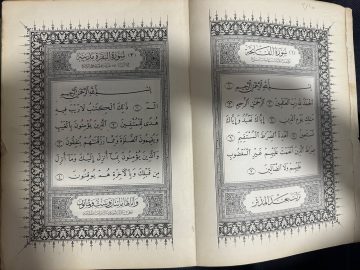 (١) سُورَةُ الفَاتِحَة
بِسْمِ اللَّهِ الرَّحْمَٰنِ الرَّحِيمِ
الْحَمْدُ لِلَّهِ رَبِّ الْعَٰلَمِينَ ۝ الرَّحْمَٰنِ الرَّحِيمِ ۝
مَٰلِكِ يَوْمِ الدِّينِ ۝ إِيَّاكَ نَعْبُدُ وَإِيَّاكَ
نَسْتَعِينُ ۝ اهْدِنَا الصِّرَٰطَ الْمُسْتَقِيمَ ۝
صِرَٰطَ الَّذِينَ أَنْعَمْتَ عَلَيْهِمْ غَيْرِ الْمَغْضُوبِ
عَلَيْهِمْ وَلَا الضَّالِّينَ ۝
(٢) سُورَةُ البَقَرَةِ مَدَنِيَّة
بِسْمِ اللَّهِ الرَّحْمَٰنِ الرَّحِيمِ
الٓمٓ ۝ ذَٰلِكَ الْكِتَٰبُ لَا رَيْبَ فِيهِ
هُدًى لِّلْمُتَّقِينَ ۝ الَّذِينَ يُؤْمِنُونَ بِالْغَيْبِ
وَيُقِيمُونَ الصَّلَوٰةَ وَمِمَّا رَزَقْنَٰهُمْ يُنفِقُونَ ۝
وَالَّذِينَ يُؤْمِنُونَ بِمَا أُنزِلَ إِلَيْكَ وَمَا أُنزِلَ
مِن قَبْلِكَ وَبِالْأَخِرَةِ هُمْ يُوقِنُونَ ۝